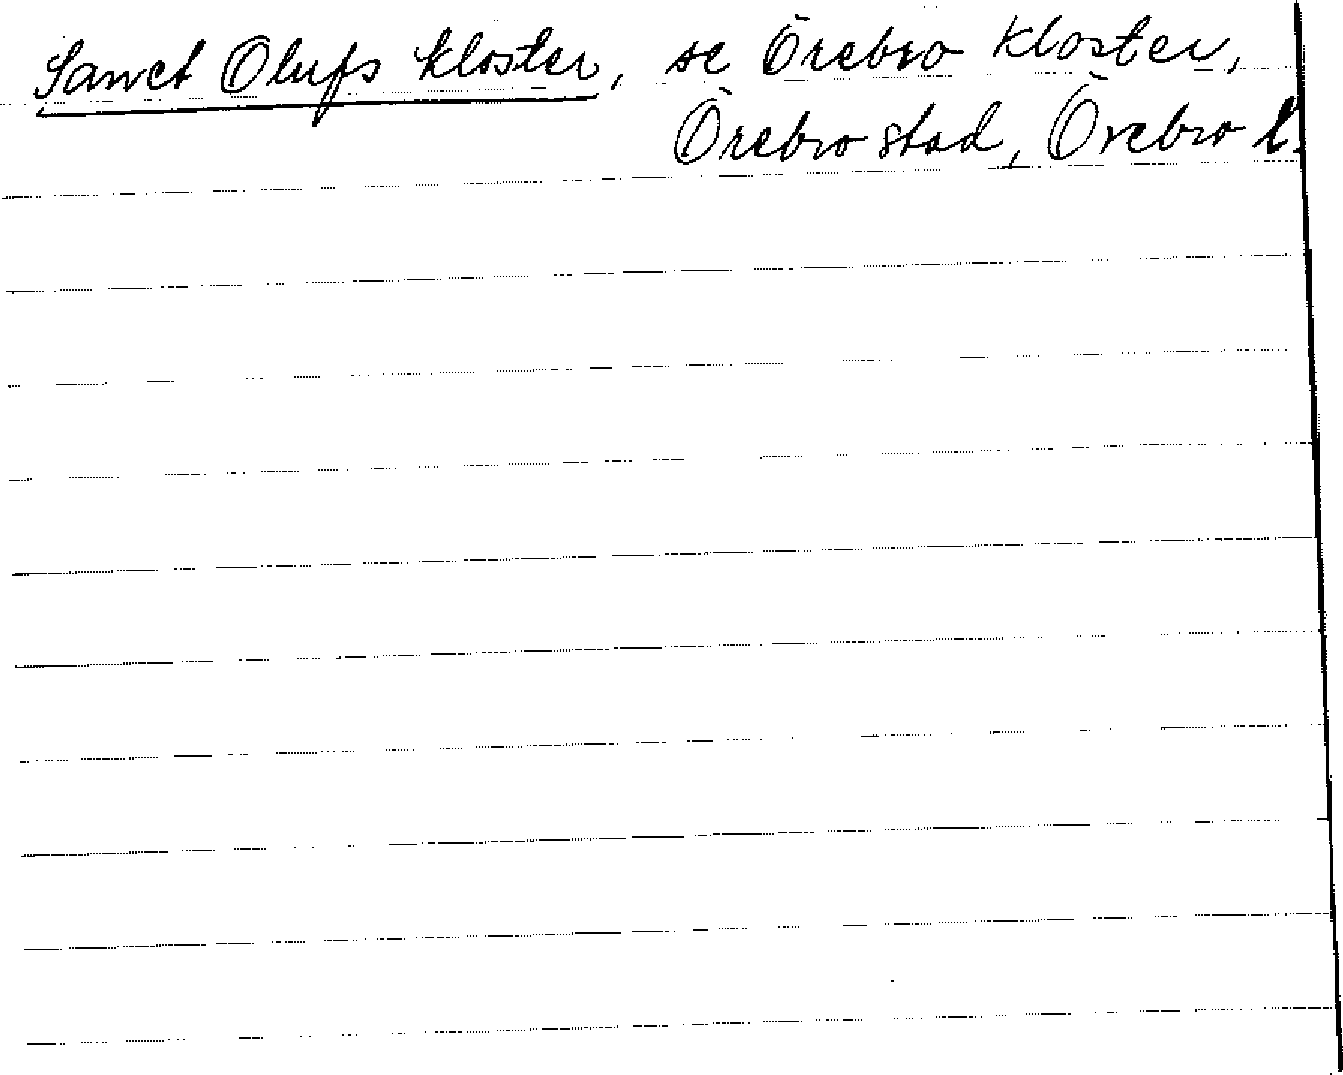 Sanct Olufs kloster, se Örebro kloster,
Örebro stad, Örebro l.